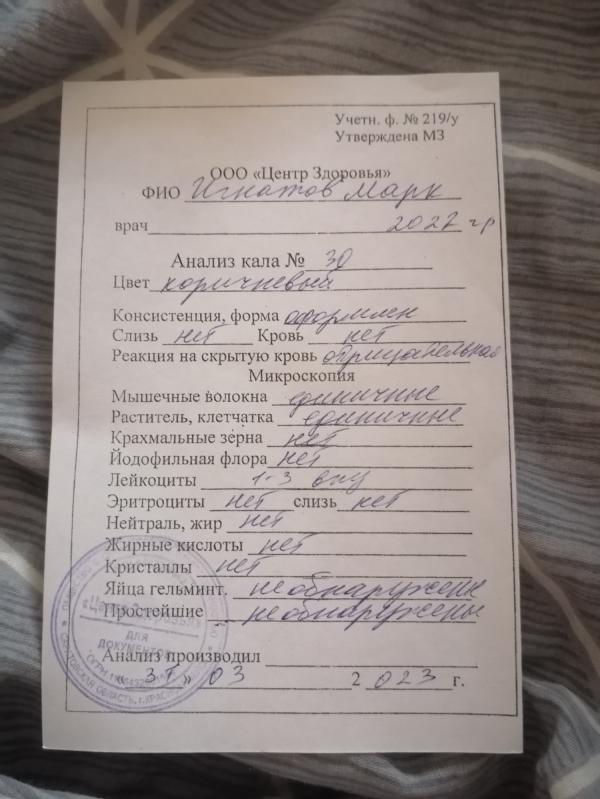 Учетн. ф. № 219/у
Утверждена МЗ
ООО «Центр Здоровья»
ФИО Игнатов Марк
врач 2022 гр
Анализ кала № 30
Цвет коричневый
Консистенция, форма оформлен
Слизь нет Кровь нет
Реакция на скрытую кровь отрицательная
Микроскопия
Мышечные волокна единичные
Раститель, клетчатка единичные
Крахмальные зерна нет
Йодофильная флора нет
Лейкоциты 1-3
Эритроциты нет слизь нет
Нейтраль, жир нет
Жирные кислоты нет
Кристаллы нет
Яйца гельминт. не обнаружены
Простейшие не обнаружены
«Центр Здоровья»
ДЛЯ
ДОКУМЕНТОВ
САРАТОВСКАЯ ОБЛАСТЬ, г.
Анализ производил
« 31 » 03 2 023 г.